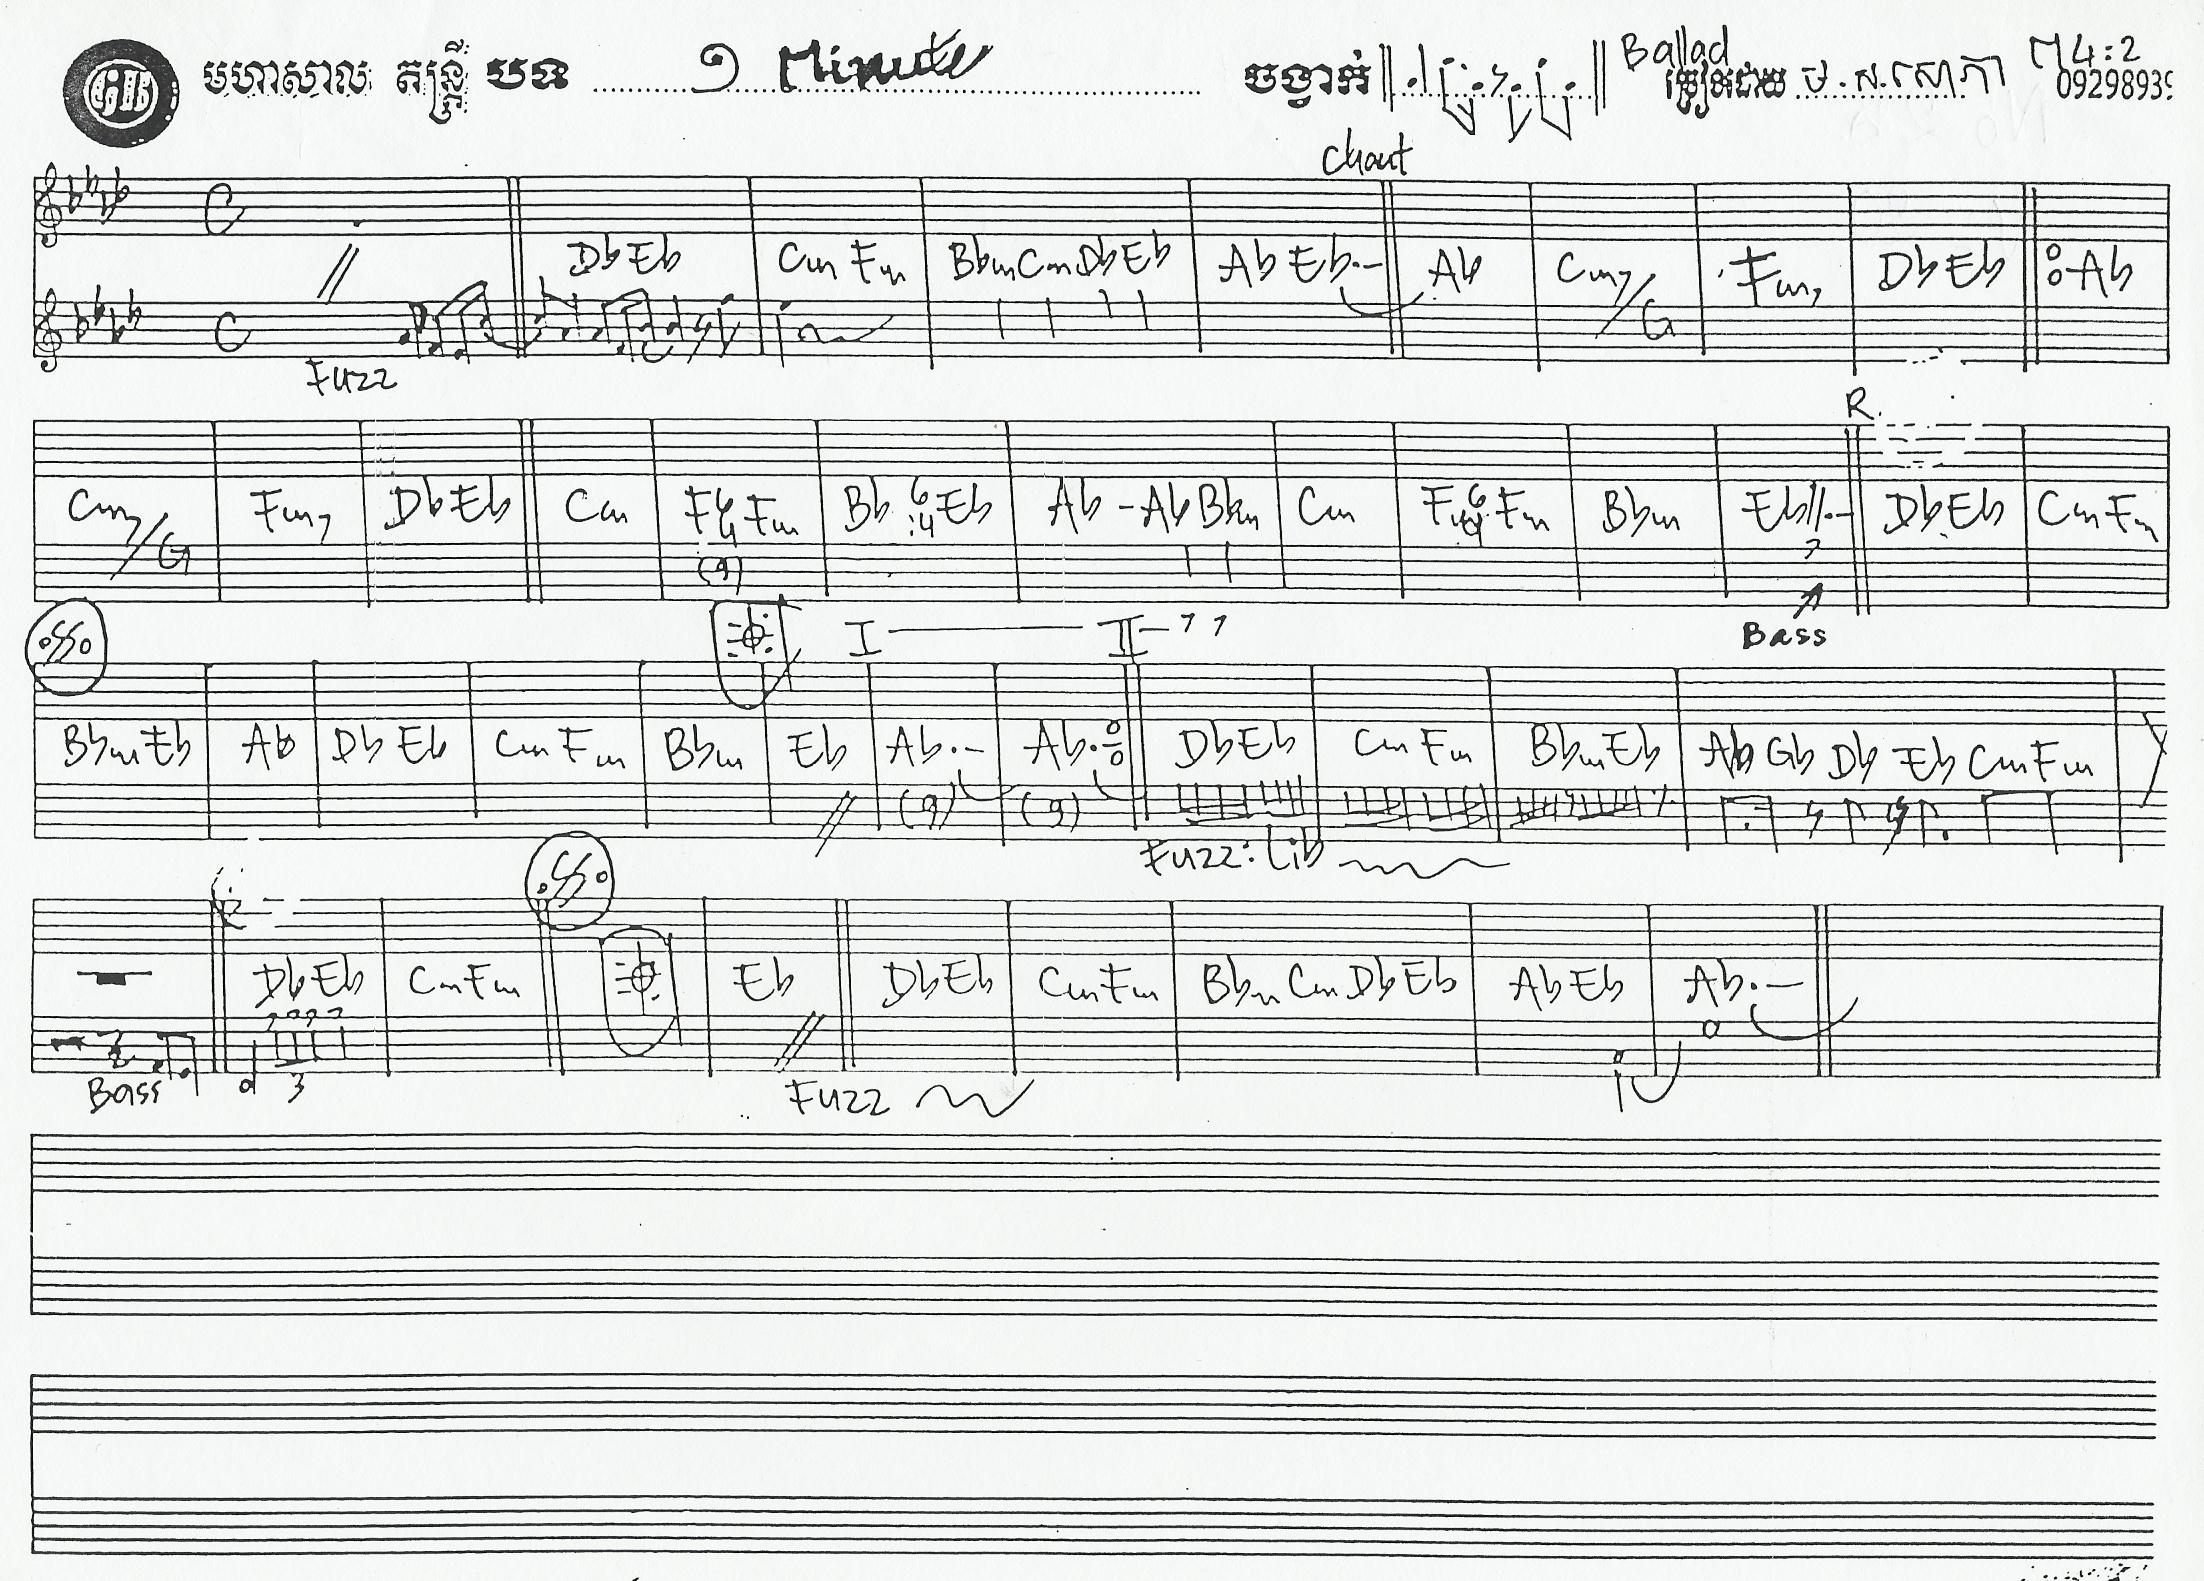 មហាសាល តន្ត្រី បទ ១ Minute ចង្វាក់ Ballad រៀបរៀងដោយ ម.ស.សោភា 4:2 09298939
Chant
Db Eb Cm Fm Bbm Cm Db Eb Ab Eb.- Ab Cm7/G Fm7 Db Eb Ab
Fuzz
R.
Cm7/G Fm7 Db Eb Cm F6 4 Fm Bb 6 4 Eb Ab - Ab Bbm Cm Fm 6 4 Fm Bbm Eb//.- Db Eb Cm Fm
(9)
Bass
I II
Bbm Eb Ab Db Eb Cm Fm Bbm Eb Ab.- Ab. Db Eb Cm Fm Bbm Eb Ab Gb Db Eb Cm Fm
(9) (9)
Fuzz: Lib
Db Eb Cm Fm Eb Db Eb Cm Fm Bbm Cm Db Eb Ab Eb Ab.-
Bass 3 Fuzz